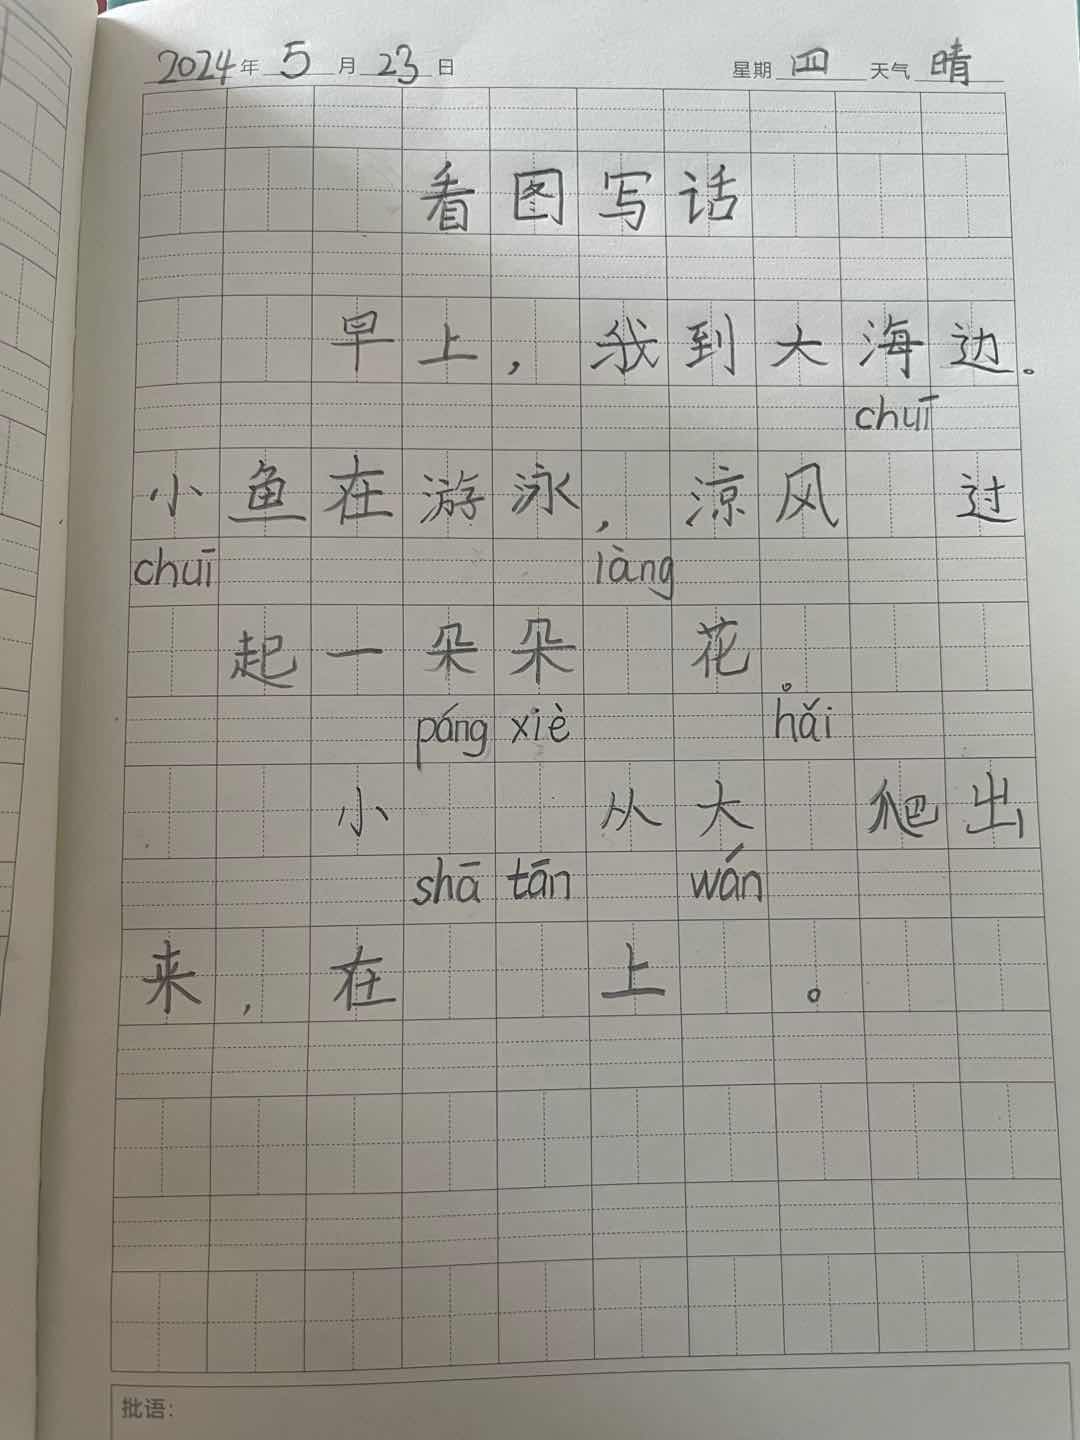 2024年5月23日 星期四 天气晴
看图写话
早上，我到大海边。
chuī
小鱼在游泳，凉风 过
chuī làng
起一朵朵 花。
páng xiè hǎi
小 从大 爬出
shā tān wán
来，在 上 。
批语：